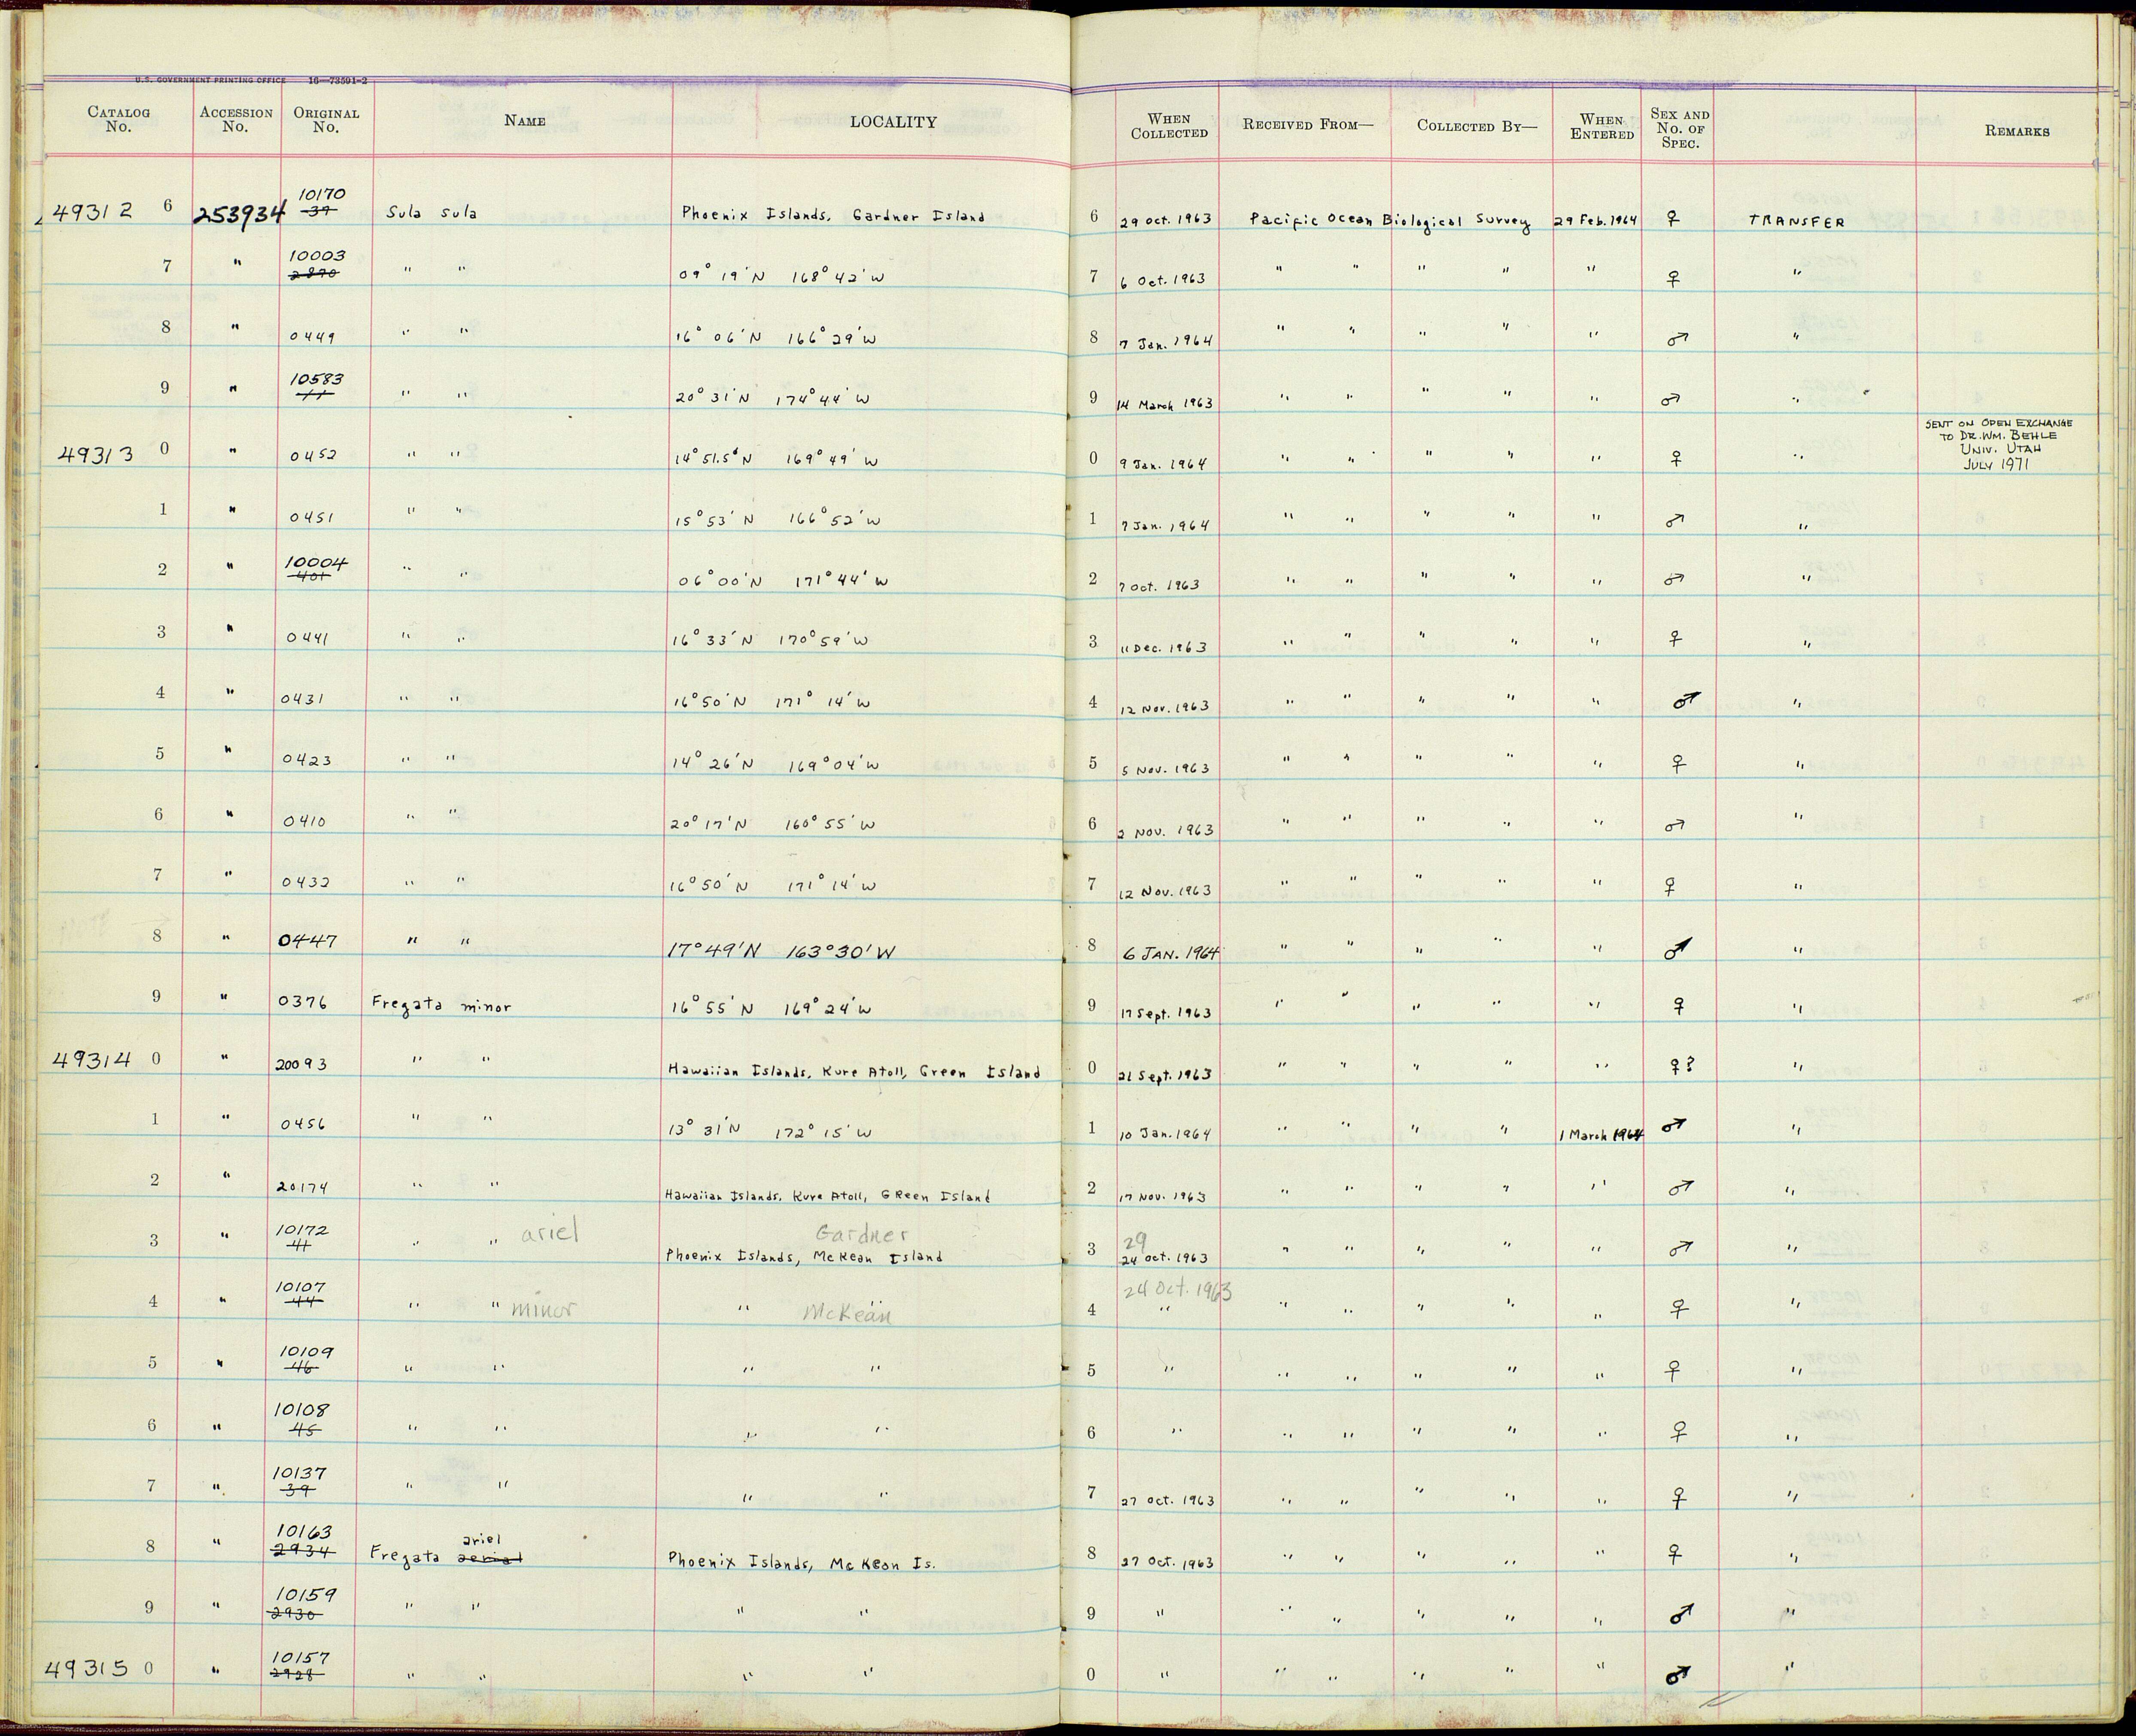 U.S. GOVERNMENT PRINTING OFFICE 16—73591-2
CATALOG No. ACCESSION No. ORIGINAL No. NAME LOCALITY WHEN COLLECTED RECEIVED FROM— COLLECTED BY— WHEN ENTERED SEX AND No. OF SPEC. REMARKS
10170
49312 6 253934 39 Sula sula Phoenix Islands, Gardner Island 6 29 Oct. 1963 Pacific Ocean Biological Survey 29 Feb. 1964 ♀ TRANSFER
10003
7 " 2870 " " 09° 19' N 168° 42' W 7 6 Oct. 1963 " " " " " ♀ "
8 " 0449 " " 16° 06' N 166° 29' W 8 7 Jan. 1964 " " " " " ♂ "
10583
9 " " " 20° 31' N 174° 44' W 9 14 March 1963 " " " " " ♂ "
SENT ON OPEN EXCHANGE
TO DR. WM. BEHLE
UNIV. UTAH
JULY 1971
49313 0 " 0452 " " 14° 51.5' N 169° 49' W 0 9 Jan. 1964 " " " " " ♀ "
1 " 0451 " " 15° 53' N 166° 52' W 1 7 Jan. 1964 " " " " " ♂ "
10004
2 " 401 " " 06° 00' N 171° 44' W 2 7 Oct. 1963 " " " " " ♂ "
3 " 0441 " " 16° 33' N 170° 59' W 3 11 Dec. 1963 " " " " " ♀ "
4 " 0431 " " 16° 50' N 171° 14' W 4 12 Nov. 1963 " " " " " ♂ "
5 " 0423 " " 14° 26' N 169° 04' W 5 5 Nov. 1963 " " " " " ♀ "
6 " 0410 " " 20° 17' N 160° 55' W 6 2 Nov. 1963 " " " " " ♂ "
7 " 0432 " " 16° 50' N 171° 14' W 7 12 Nov. 1963 " " " " " ♀ "
8 " 0447 " " 17° 49' N 163° 30' W 8 6 JAN. 1964 " " " " " ♂ "
9 " 0376 Fregata minor 16° 55' N 169° 24' W 9 17 Sept. 1963 " " " " " ♀ "
49314 0 " 20093 " " Hawaiian Islands, Kure Atoll, Green Island 0 21 Sept. 1963 " " " " " ♀? "
1 " 0456 " " 13° 31' N 172° 15' W 1 10 Jan. 1964 " " " " 1 March 1964 ♂ "
2 " 20174 " " Hawaiian Islands, Kure Atoll, Green Island 2 17 Nov. 1963 " " " " " ♂ "
10172 ariel Gardner 29
3 " 41 " " Phoenix Islands, McKean Island 3 24 Oct. 1963 " " " " " ♂ "
10107 24 Oct. 1963
4 " 44 " " minor " McKean " 4 " " " " " " ♀ "
10109
5 " 46 " " " " 5 " " " " " " ♀ "
10108
6 " 45 " " " " 6 " " " " " " ♀ "
10137
7 " 39 " " " " 7 27 Oct. 1963 " " " " " ♀ "
10163 ariel
8 " 2934 Fregata aerial Phoenix Islands, McKean Is. 8 27 Oct. 1963 " " " " " ♀ "
10159
9 " 2930 " " " " 9 " " " " " " ♂ "
10157
49315 0 " 2928 " " " " 0 " " " " " " ♂ "